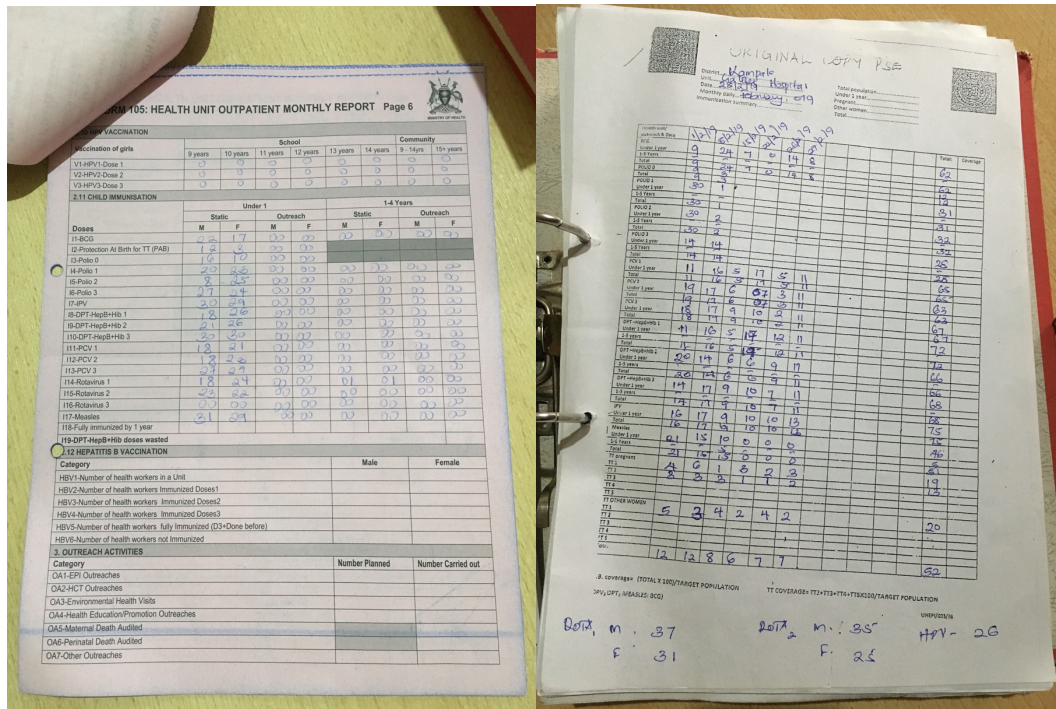 RM 105: HEALTH UNIT OUTPATIENT MONTHLY REPORT Page 6
MINISTRY OF HEALTH
HPV VACCINATION
Vaccination of girls
School
Community
9 years 10 years 11 years 12 years 13 years 14 years 9 - 14yrs 15+ years
V1-HPV1-Dose 1 0 0 0 0 0 0 0 0
V2-HPV2-Dose 2 0 0 0 0 0 0 0 0
V3-HPV3-Dose 3 0 0 0 0 0 0 0 0
2.11 CHILD IMMUNISATION
Under 1
1-4 Years
Static Outreach Static Outreach
Doses M F M F M F M F
I1-BCG 22 17 00 00 00 00 00 00
I2-Protection At Birth for TT (PAB) 12 00 00
I3-Polio 0 16 10 00 00
I4-Polio 1 20 00 00 00 00 00 00
I5-Polio 2 8 25 00 00 00 00 00 00
I6-Polio 3 27 24 00 00 00 00 00 00
I7-IPV 30 29 00 00 00 00 00 00
I8-DPT-HepB+Hib 1 18 26 00 00 00 00 00 00
I9-DPT-HepB+Hib 2 21 26 00 00 00 00 00 00
I10-DPT-HepB+Hib 3 30 30 00 00 00 00 00 00
I11-PCV 1 18 21 00 00 00 00 00 00
I12-PCV 2 18 00 00 00 00 00 00
I13-PCV 3 27 29 00 00 00 00 00 00
I14-Rotavirus 1 18 24 00 00 01 01 00 00
I15-Rotavirus 2 23 22 00 00 00 00 00 00
I16-Rotavirus 3 00 00 00 00 00 00 00 00
I17-Measles 31 29 00 00 00 00 00 00
I18-Fully immunized by 1 year
I19-DPT-HepB+Hib doses wasted
.12 HEPATITIS B VACCINATION
Category Male Female
HBV1-Number of health workers in a Unit
HBV2-Number of health workers Immunized Doses1
HBV3-Number of health workers Immunized Doses2
HBV4-Number of health workers Immunized Doses3
HBV5-Number of health workers fully Immunized (D3+Done before)
HBV6-Number of health workers not Immunized
3. OUTREACH ACTIVITIES
Category Number Planned Number Carried out
OA1-EPI Outreaches
OA2-HCT Outreaches
OA3-Environmental Health Visits
OA4-Health Education/Promotion Outreaches
OA5-Maternal Death Audited
OA6-Perinatal Death Audited
OA7-Other Outreaches
ORIGINAL COPY PSE
District Kampala
Unit Hospital
Date 28/2/19
Monthly daily February 019
Immunization summary
Total population
Under 1 year
Pregnant
Other women
Total
Health unit/
outreach & Date
Total Coverage
BCG
Under 1 year 9 24 7 0 14 8 62
1-5 Years
Total 9 24 7 0 14 8 62
POLIO 0
Total 9 3
POLIO 1
Under 1 year 30 1 31
1-5 Years
Total 30 31
POLIO 2
Under 1 year 30 2 32
1-5 Years
Total 30 2 32
POLIO 3
Under 1 year 14 14
1-5 Years
Total 14 14
PCV 1
Under 1 year 11 16 5 17 5 11 65
Total 11 16 5 17 5 11 65
PCV 2
Under 1 year 19 17 6 07 3 11 63
Total 19 17 6 07 3 11 63
PCV 3
Under 1 year 18 17 9 10 2 11 67
Total 18 17 9 10 2 11 67
DPT -HepB+Hib 1
Under 1 year 11 16 5 17 12 11 72
1-5 years
Total 11 16 5 17 12 11 72
DPT -HepB+Hib 2
Under 1 year 20 14 6 6 9 11 66
1-5 years
Total 20 14 6 6 9 11 66
DPT -HepB+Hib 3
Under 1 year 14 17 9 10 7 11 68
1-5 years
Total 14 17 9 10 7 11 68
IPV
Under 1 year 16 17 9 10 10 13 75
Total 16 17 9 10 10 13 75
Measles
Under 1 year 21 15 10 0 0 0 46
1-5 Years
Total 21
TT pregnant
TT 1 4 6 1 3 2 3 19
TT 2 3 3 3 1 1 2 13
TT 3
TT 4
TT 5
TT OTHER WOMEN
TT 1 5 3 4 2 4 2 20
TT 2
TT 3
TT 4
TT 5
12 12 8 6 7 7 52
.B. coverage= (TOTAL X 100)/TARGET POPULATION TT COVERAGE= TT2+TT3+TT4+TT5X100/TARGET POPULATION
OPV, DPT, MEASLES: BCG)
UNEPI/
ROTA1 M: 37
F: 31
ROTA2 M: 35
F: 25
HPV - 26